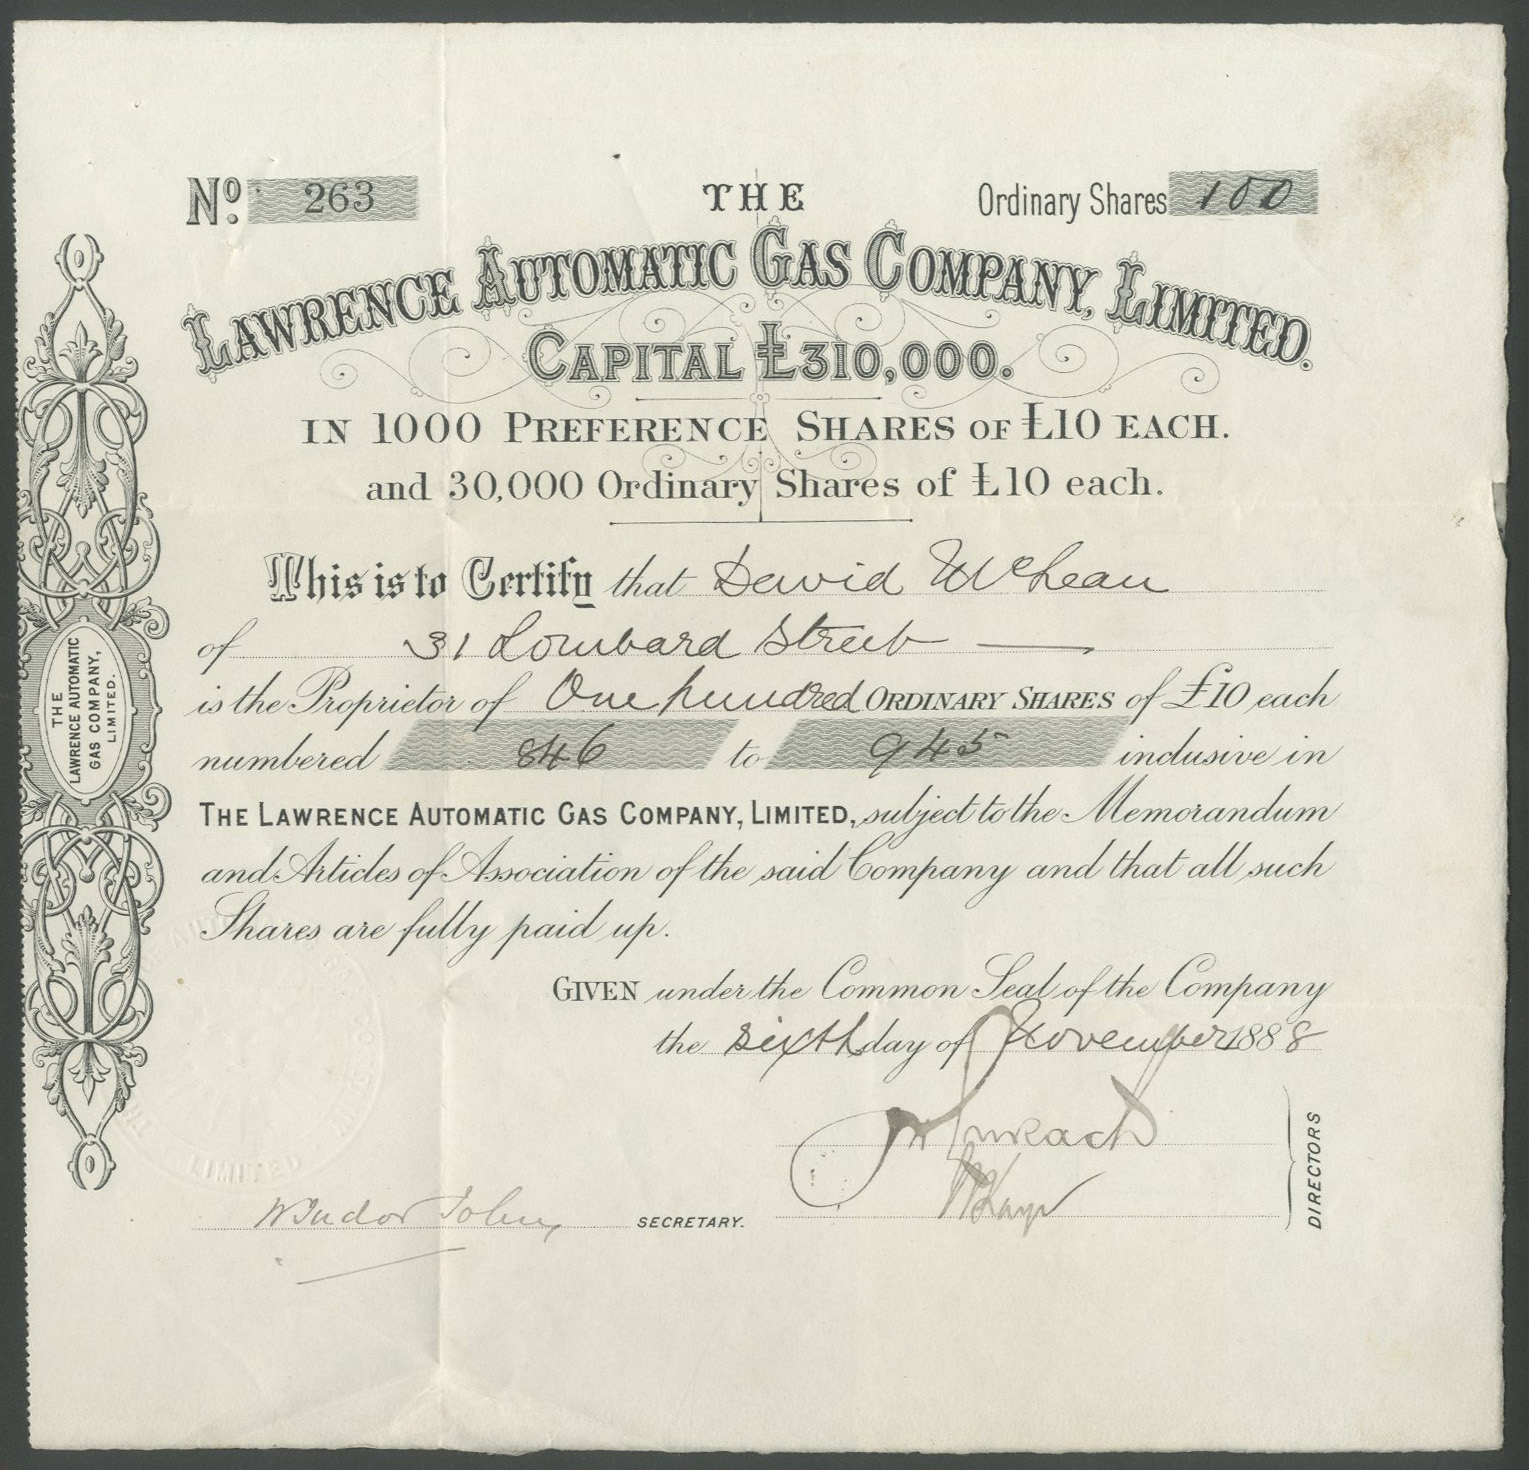 No. 263
THE
Ordinary Shares 100
LAWRENCE AUTOMATIC GAS COMPANY, LIMITED.
CAPITAL £310,000.
IN 1000 PREFERENCE SHARES OF £10 EACH.
and 30,000 Ordinary Shares of £10 each.
This is to Certify that David McLean
of 31 Lombard Street
is the Proprietor of One hundred ORDINARY SHARES of £10 each
numbered 846 to 945 inclusive in
THE LAWRENCE AUTOMATIC GAS COMPANY, LIMITED, subject to the Memorandum
and Articles of Association of the said Company and that all such
Shares are fully paid up.
GIVEN under the Common Seal of the Company
the sixth day of November 1888
DIRECTORS
SECRETARY.
THE
LAWRENCE AUTOMATIC
GAS COMPANY,
LIMITED.
LIMITED